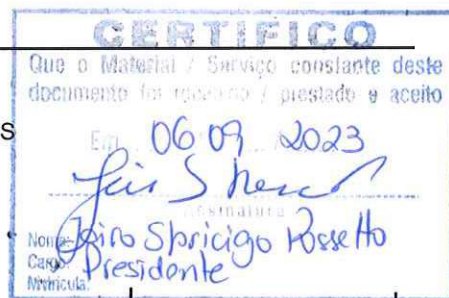 CERTIFICO
Que o Material / Serviço constante deste
documento foi recebido / prestado e aceito
s
Em 06 09 2023
Assinatura
Nome: Jairo Spricigo Rossetto
Cargo: Presidente
Matrícula: